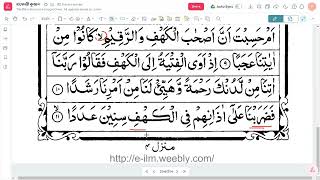 اَمْ حَسِبْتَ اَنَّ اَصْحٰبَ الْكَهْفِ وَالرَّقِيْمِ كَانُوْا مِنْ
اٰيٰتِنَا عَجَبًا ۹ اِذْ اَوَى الْفِتْيَةُ اِلَى الْكَهْفِ فَقَالُوْا رَبَّنَا
اٰتِنَا مِنْ لَّدُنْكَ رَحْمَةً وَّهَيِّئْ لَنَا مِنْ اَمْرِنَا رَشَدًا ۱۰
فَضَرَبْنَا عَلٰٓى اٰذَانِهِمْ فِى الْكَهْفِ سِنِيْنَ عَدَدًا ۱۱
منزل ۴
http://e-ilm.weebly.com/